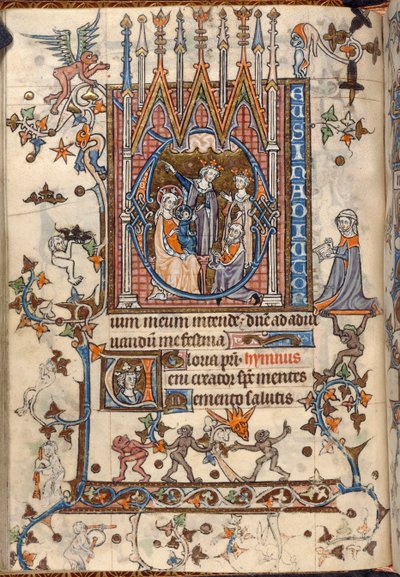 DEUSINADIUTO
rium meum intende· dñe ad adiu
uandū me festina
Gloria pr̄i· hymnus
Veni creator sp̄c mentes
Memento salutis